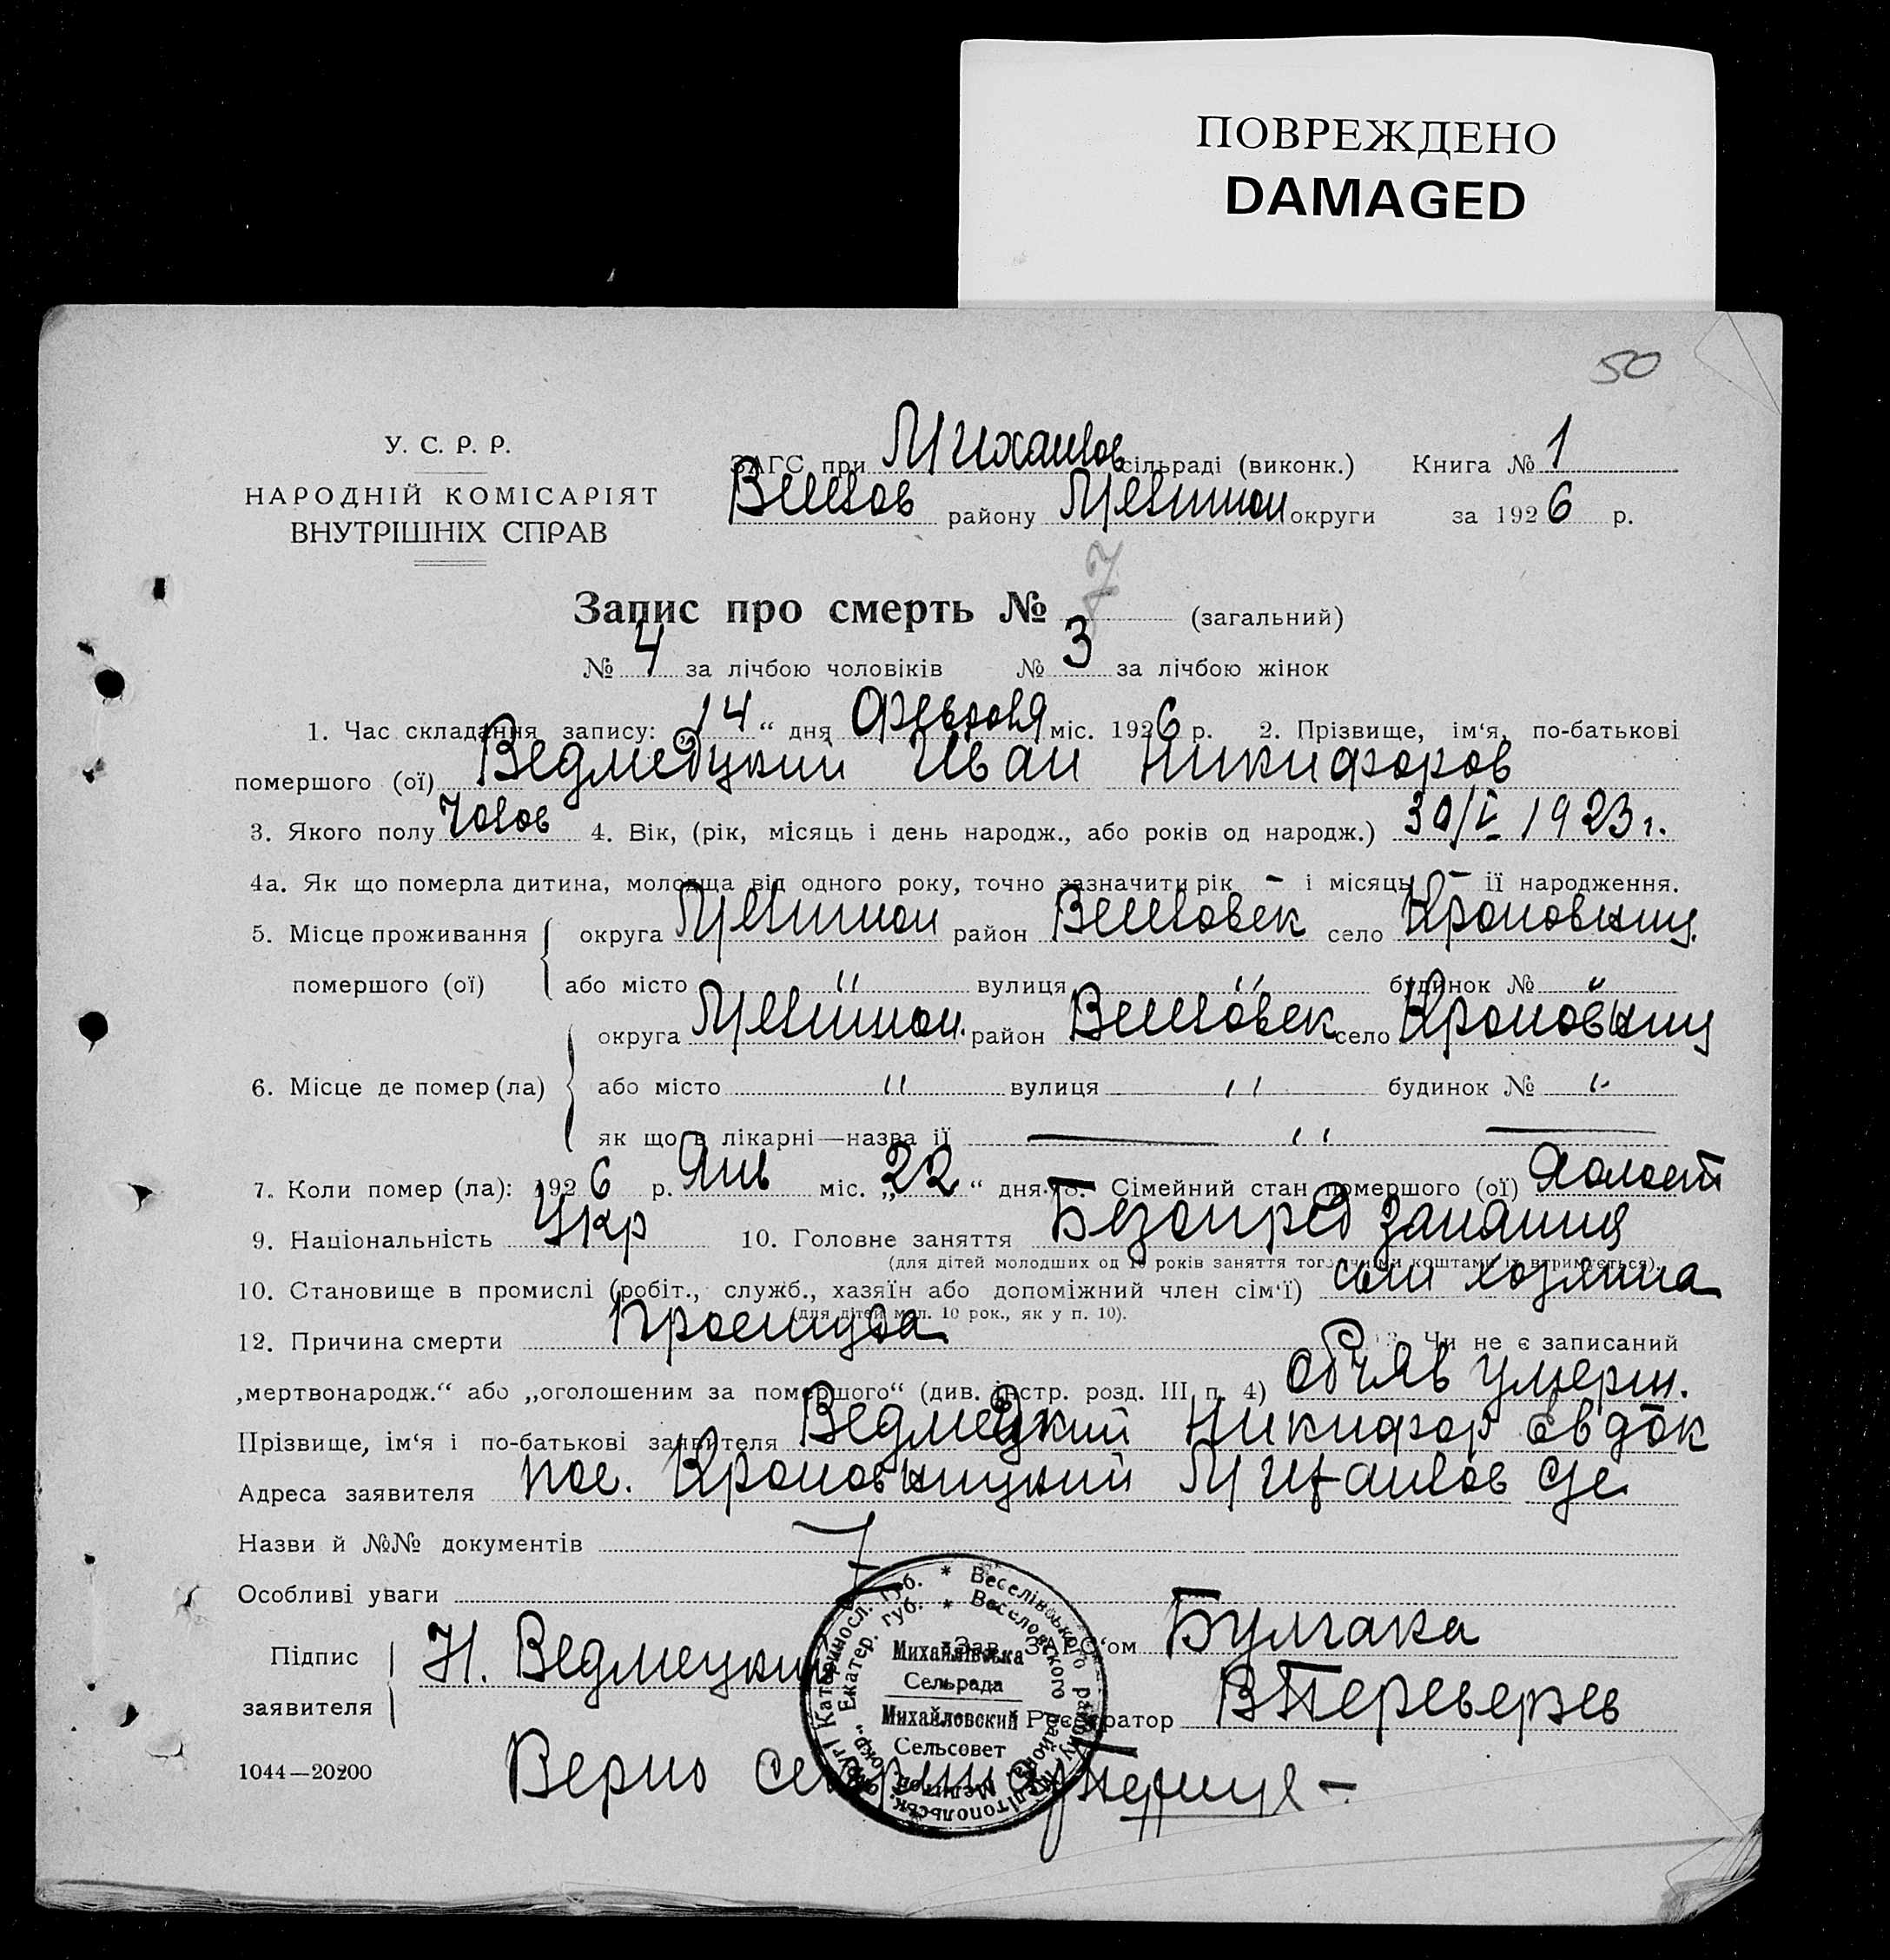 ПОВРЕЖДЕНО
DAMAGED
50
У. С. Р. Р.
НАРОДНІЙ КОМІСАРІЯТ
ВНУТРІШНІХ СПРАВ
ЗАГС при Михайлов сільраді (виконк.) Книга № 1
району округи за 1926 р.
Запис про смерть № 7 (загальний)
№ 4 за лічбою чоловіків № 3 за лічбою жінок
1. Час складання запису: 14 “ дня февраля міс. 1926 р. 2. Прізвище, ім‘я, по-батькові
помершого (ої) Ведмедцкий Иван Никифоров
3. Якого полу Чолов 4. Вік, (рік, місяць і день народж., або років од народж.) 30/V 1923 г.
4а. Як що померла дитина, молодща від одного року, точно зазначити рік - і місяць - ії народження.
5. Місце проживання округа район село
помершого (ої) або місто " вулиця " будинок № "
округа район село
6. Місце де помер (ла) або місто " вулиця " будинок № "
як що в лікарні—назва ії "
7. Коли помер (ла): 1926 р. Янв міс. „22“ дня. 8. Сімейний стан помершого (ої) Холост
9. Національність Укр 10. Головне заняття Безопред занятия
(для дітей молодших од 10 років заняття того, чиїми коштами їх втримується).
10. Становище в промислі (робіт., служб., хазяїн або допоміжний член сім‘ї) сын хозяина
(для дітей мол. 10 рок., як у п. 10).
12. Причина смерти Простуда 13. Чи не є записаний
„мертвонародж.“ або „оголошеним за помершого“ (див. інстр. розд. III п. 4) объяв умерш.
Прізвище, ім‘я і по-батькові заявителя Ведмецкий Никифор Евдок
Адреса заявителя пос. Михайлов с/с
Назви й №№ документів
Особливі уваги
Підпис Н. Ведмецкий Зав. ЗАГС‘ом Булгака
заявителя Реєстратор ВПереверзев
1044—20200 Верно
Катериносл. губ. * Веселівського району Мелітопольськ. округі
Екатер. губ. * Веселовского района Мелитоп. окр.
Михайлівська
Сельрада
Михайловский
Сельсовет